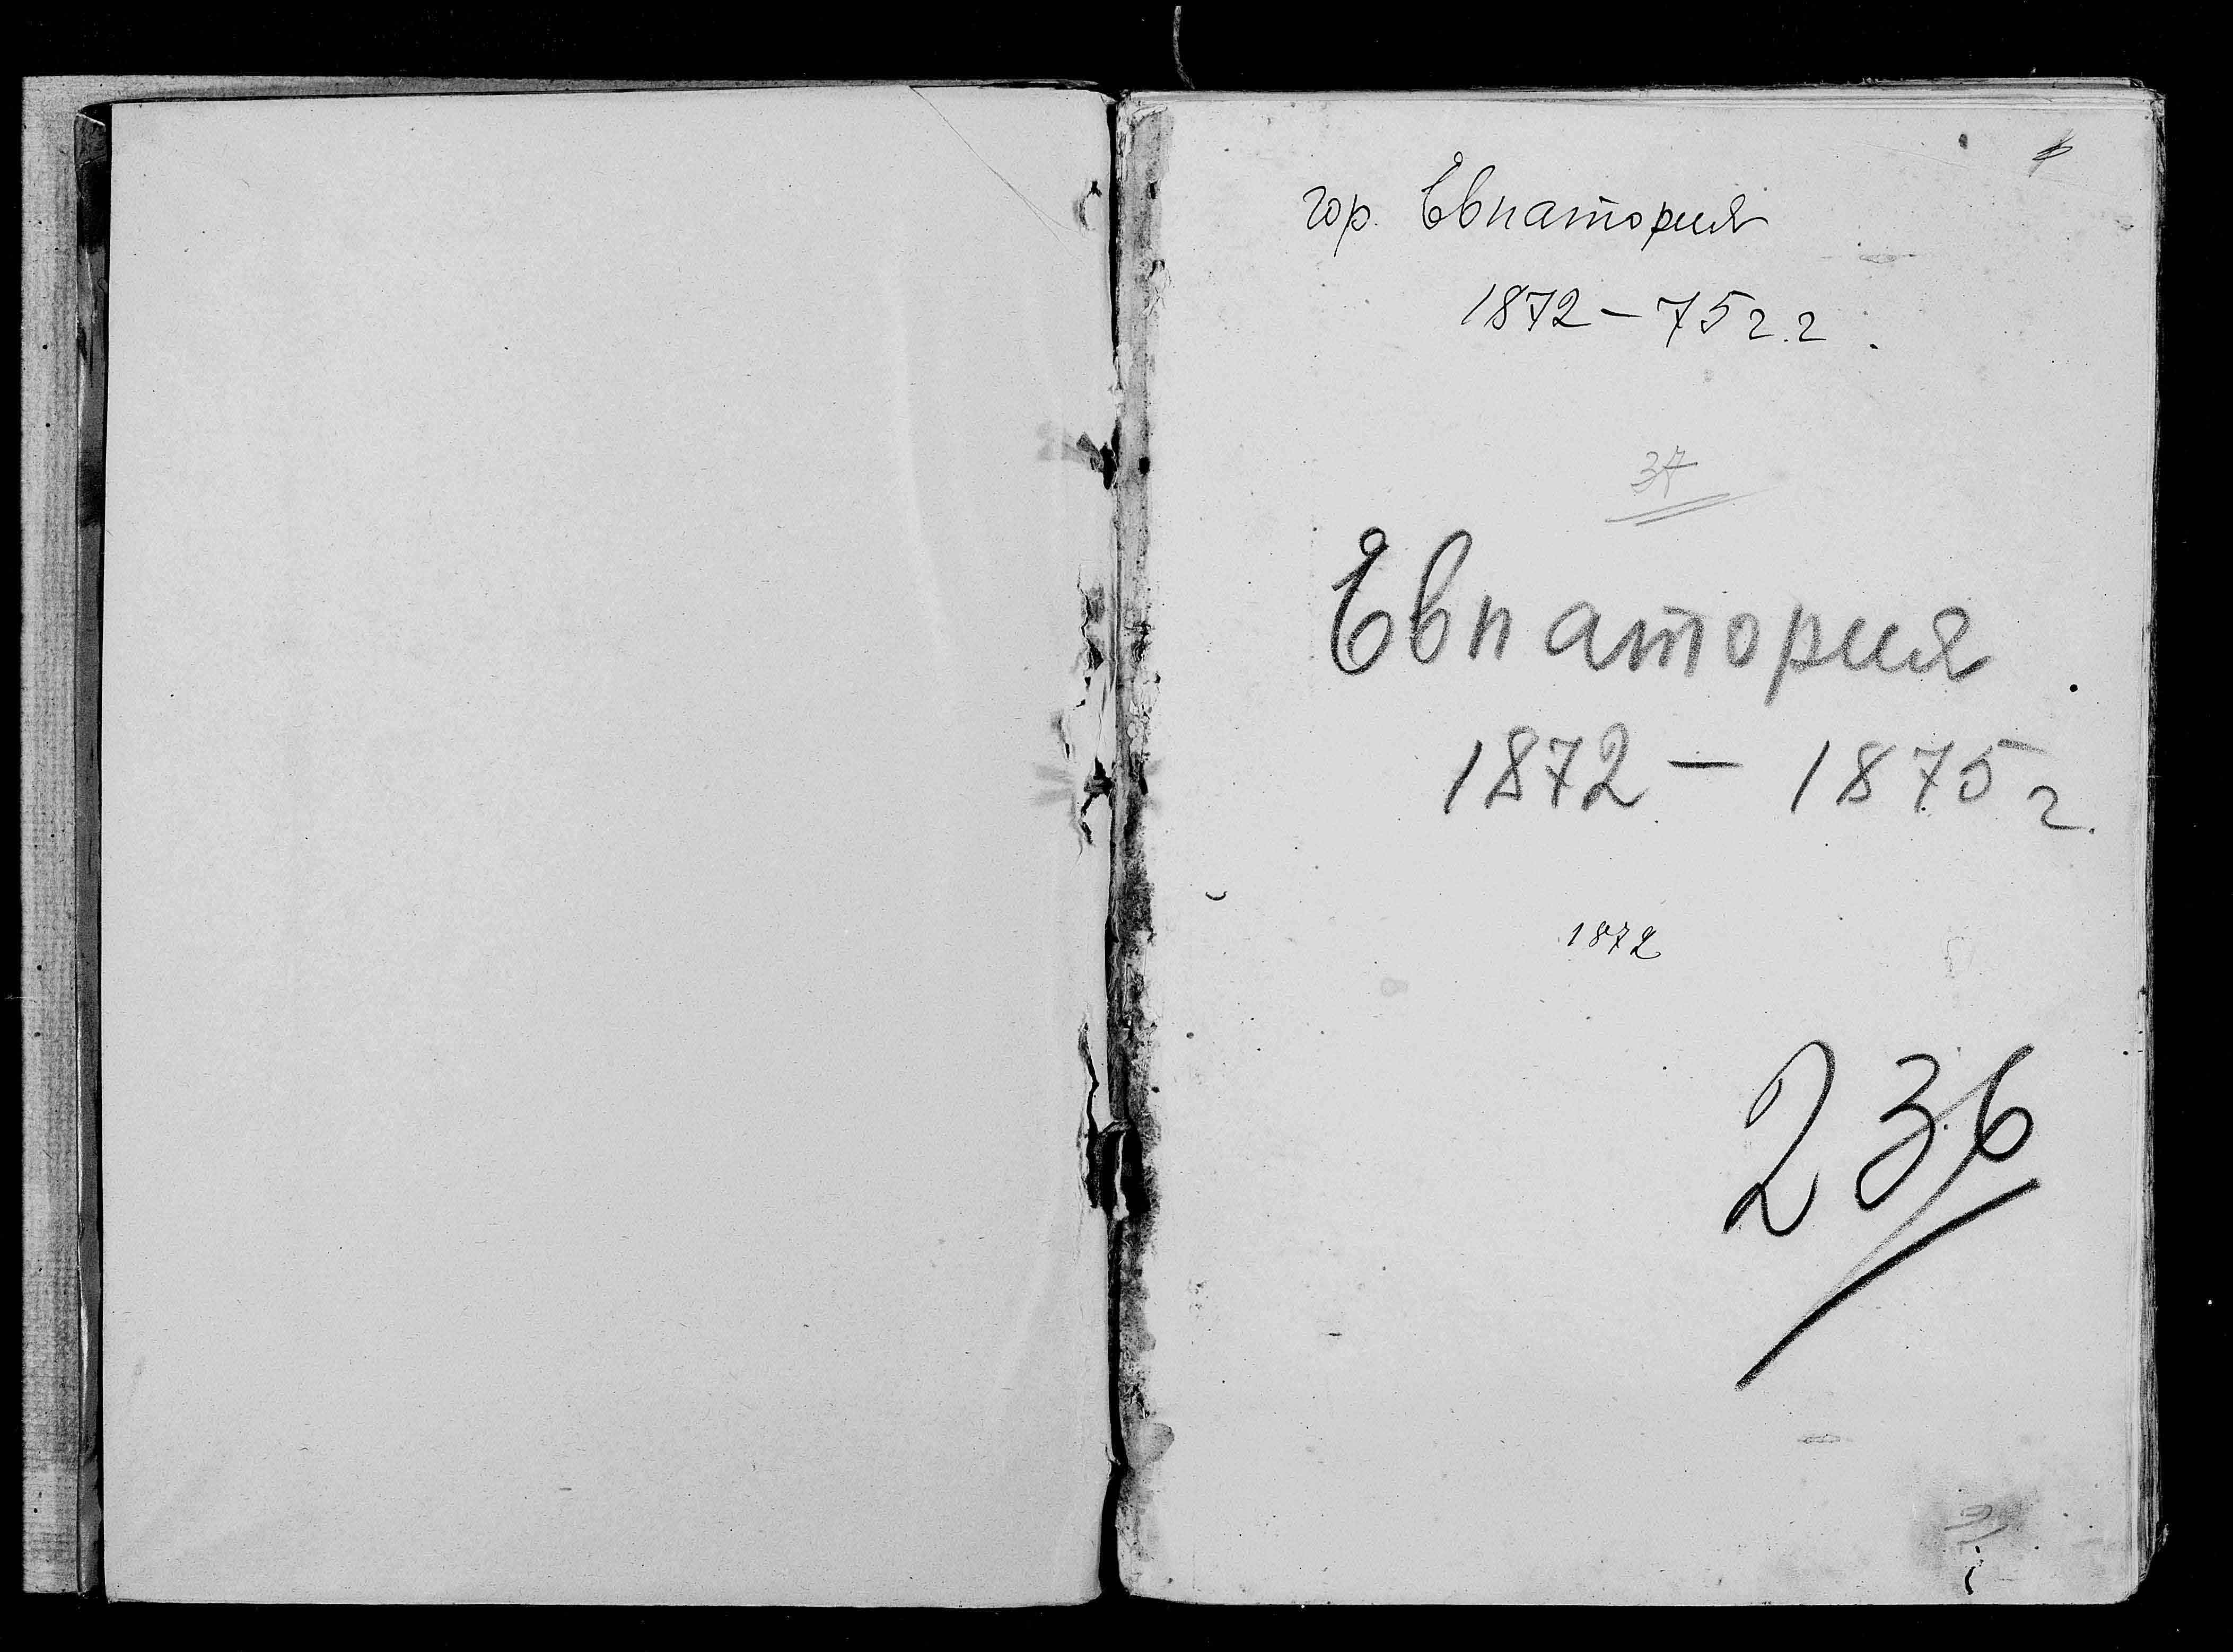 гор. Евпатория
1872 – 75 г.г.
37
Евпатория
1872 – 1875 г.
1872
236